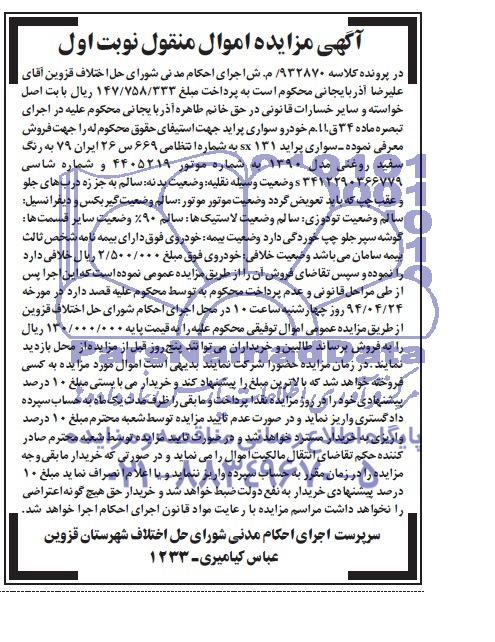 آگهی مزایده اموال منقول نوبت اول
در پرونده کلاسه ۹۳۲۸۷۰/ م.ش اجرای احکام مدنی شورای حل اختلاف قزوین آقای
علیرضا آذربایجانی محکوم است به پرداخت مبلغ ۱۴۷/۷۵۸/۳۳۳ ریال بابت اصل
خواسته و سایر خسارات قانونی در حق خانم طاهره آذربایجانی محکوم علیه در اجرای
تبصره ماده ۳۴ ق.ا.ا.م خودرو سواری پراید جهت استیفای حقوق محکوم له را جهت فروش
معرفی نموده ـ سواری پراید ۱۳۱ sx به شماره انتظامی ۶۶۹ س ۲۶ ایران ۷۹ به رنگ
سفید روغنی مدل ۱۳۹۰ به شماره موتور ۴۴۰۵۲۱۹ و شماره شاسی
s ۳۴۱۲۲۹۰۳۶۶۷۷۹ وضعیت وسیله نقلیه: وضعیت بدنه: سالم به جز زه درب های جلو
و عقب چپ که باید تعویض گردد وضعیت موتور موتور: سالم وضعیت گیربکس و دیفرانسیل:
سالم وضعیت تودوزی: سالم وضعیت لاستیک ها: سالم ۹۰٪ وضعیت سایر قسمت ها:
گوشه سپر جلو چپ خوردگی دارد وضعیت بیمه: خودروی فوق دارای بیمه نامه شخص ثالث
بیمه سامان می باشد وضعیت خلافی: خودروی فوق مبلغ ۲/۵۰۰/۰۰۰ ریال خلافی دارد
را نموده و سپس تقاضای فروش آن را از طریق مزایده عمومی نموده است که این اجرا پس
از طی مراحل قانونی و عدم پرداخت محکوم به توسط محکوم علیه قصد دارد در مورخه
۹۴/۰۴/۲۴ روز چهارشنبه ساعت ۱۰ در محل اجرای احکام شورای حل اختلاف قزوین
از طریق مزایده عمومی اموال توقیفی محکوم علیه را به قیمت پایه ۱۳۰/۰۰۰/۰۰۰ ریال
را به فروش برساند طالبین و خریداران می توانند پنج روز قبل از مزایده از محل بازدید
نمایند. در زمان مزایده حضورا شرکت نمایند بدیهی است اموال مورد مزایده به کسی
فروخته خواهد شد که بالاترین مبلغ را پیشنهاد کند و خریدار می بایستی مبلغ ۱۰ درصد
پیشنهادی خود را در روز مزایده نقدا پرداخت و مابقی را ظرف مدت یک ماه به حساب سپرده
دادگستری واریز نماید و در صورت عدم تایید مزایده توسط شعبه محترم مبلغ ۱۰ درصد
واریزی به خریدار مسترد خواهد شد و در صورت تایید مزایده توسط شعبه محترم صادر
کننده حکم تقاضای انتقال مالکیت اموال را می نماید و در صورتی که خریدار مابقی وجه
مزایده را در زمان مقرر به حساب سپرده واریز ننماید و یا اعلام انصراف نماید مبلغ ۱۰
درصد پیشنهادی خریدار به نفع دولت ضبط خواهد شد و خریدار حق هیچ گونه اعتراضی
را نخواهد داشت مراسم مزایده با رعایت مواد قانون اجرای احکام اجرا خواهد شد.
سرپرست اجرای احکام مدنی شورای حل اختلاف شهرستان قزوین
عباس کیامیری ـ ۱۲۳۳
ParsNamadData
۰۲۱-۸۸۳۴۹۶۷۰-۵